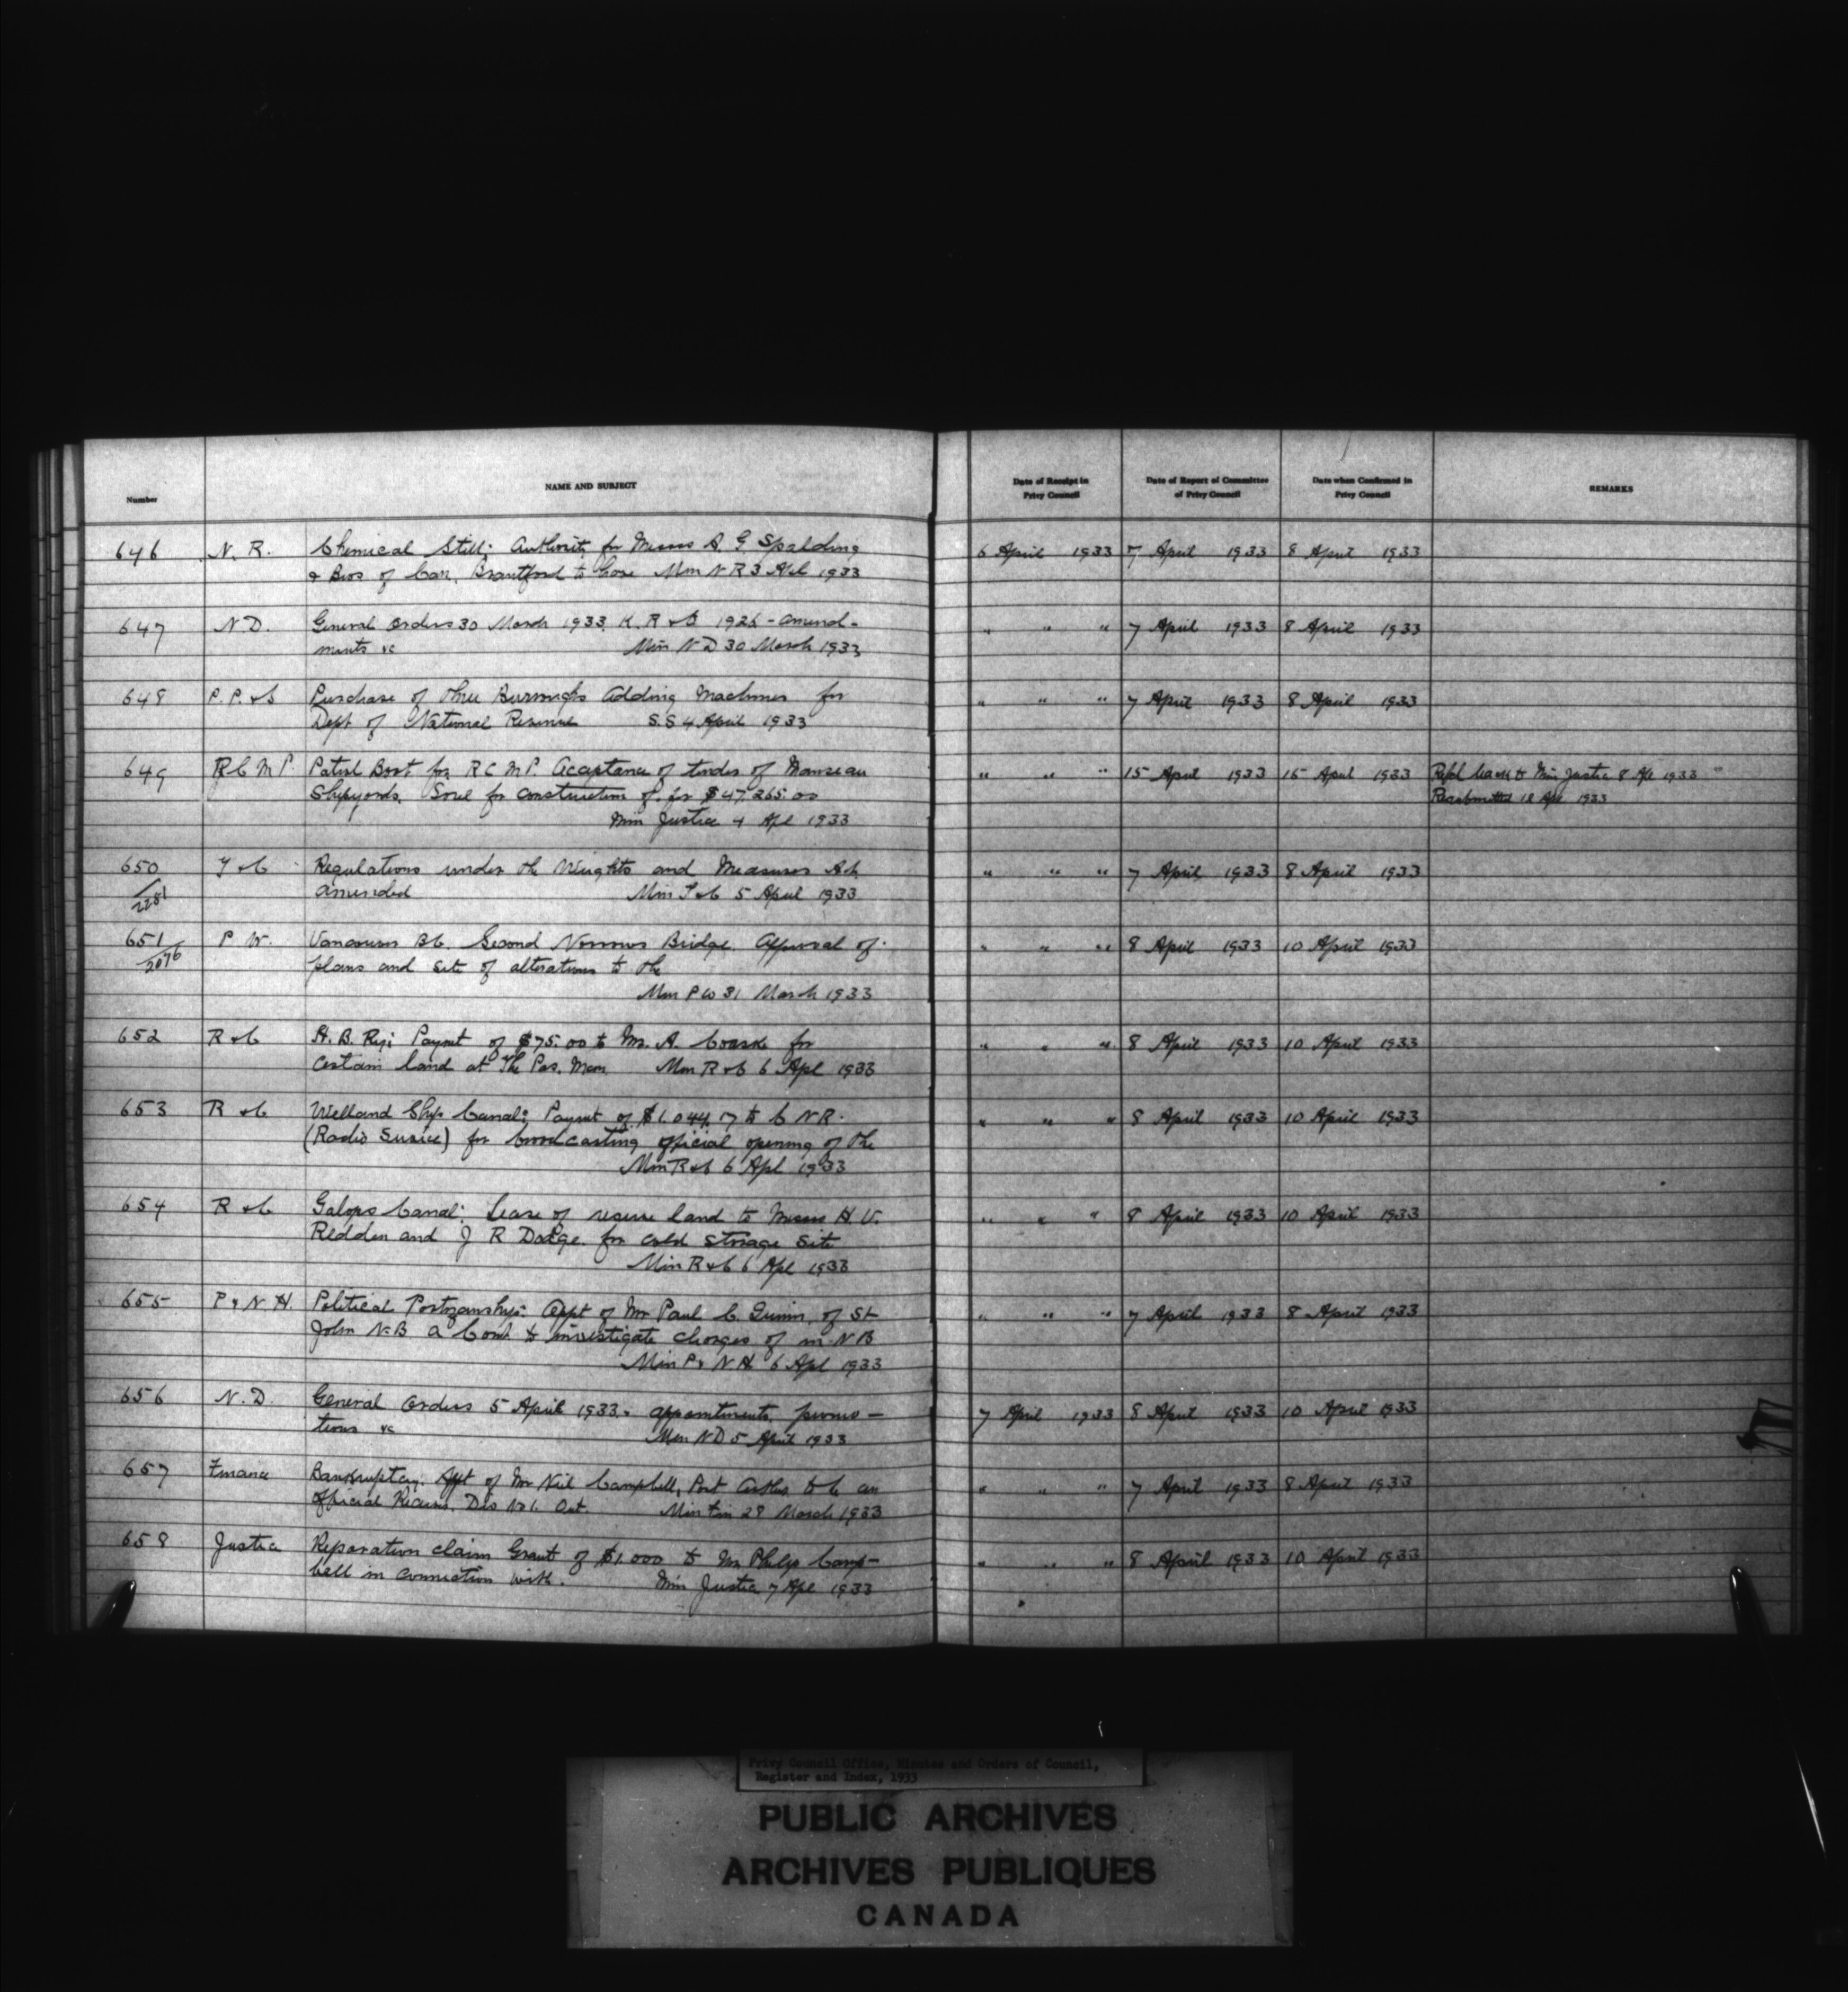 Number NAME AND SUBJECT Date of Receipt in Privy Council Date of Report of Committee of Privy Council Date when Confirmed in Privy Council REMARKS
646 N. R. Chemical Still: Authority for Messrs A. G. Spalding 6 April 1933 7 April 1933 8 April 1933
& Bros of Can. Brantford to have Min N R 3 Apl 1933
647 N. D. General Orders 30 March 1933. K. R & O 1926 - amend- " " " 7 April 1933 8 April 1933
ments &c Min N D 30 March 1933
648 P. P. & S Purchase of three Burroughs Adding Machines for " " " 7 April 1933 8 April 1933
Dept of National Revenue S. S 4 April 1933
649 R C M P. Patrol Boat for R C M P. Acceptance of tender of Manseau " " " 15 April 1933 15 April 1933 Back to Min Justice 8 Apl 1933
Shipyards, Sorel for construction of. for $47,265.00 Resubmitted 12 Apl 1933
Min Justice 4 Apl 1933
650 T & C Regulations under the Weights and Measures Act " " " 7 April 1933 8 April 1933
2281 amended Min T & C 5 April 1933
651 P. W. Vancouver B.C. Second Narrows Bridge. Approval of " " " 8 April 1933 10 April 1933
2076 plans and site of alterations to the
Min P W 31 March 1933
652 R & C H. B. Ry: Paymt of $75.00 to Mr. A. for " " " 8 April 1933 10 April 1933
certain land at The Pas. Man. Min R & C 6 Apl 1933
653 R & C Welland Ship Canal: Paymt of $1,044.17 to C N R. " " " 8 April 1933 10 April 1933
(Radio Service) for broadcasting official opening of the
Min R & C 6 Apl 1933
654 R & C Galops Canal: Lease of reserve land to Messrs H. V. " " " 8 April 1933 10 April 1933
Redden and J R Dodge. for cold storage site
Min R & C 6 Apl 1933
655 P & N H. Political Partizanship: Appt of Mr Paul C. Quinn, of St " " " 7 April 1933 8 April 1933
John N.B a Comr to investigate charges of in N B
Min P & N H 6 Apl 1933
656 N. D. General Orders 5 April 1933. appointments, promo- 7 April 1933 8 April 1933 10 April 1933
tions &c Min N D 5 April 1933
657 Finance Bankruptcy. Appt of Mr Neil Campbell, Port Arthur to be an " " " 7 April 1933 8 April 1933
Official Receiver, Div No 1. Ont. Min Fin 28 March 1933
658 Justice Reparation claim Grant of $1,000 to Mr Philip Camp- " " " 8 April 1933 10 April 1933
bell in connection with. Min Justice 7 Apl 1933
Privy Council Office, Minutes and Orders of Council,
Register and Index, 1933
PUBLIC ARCHIVES
ARCHIVES PUBLIQUES
CANADA